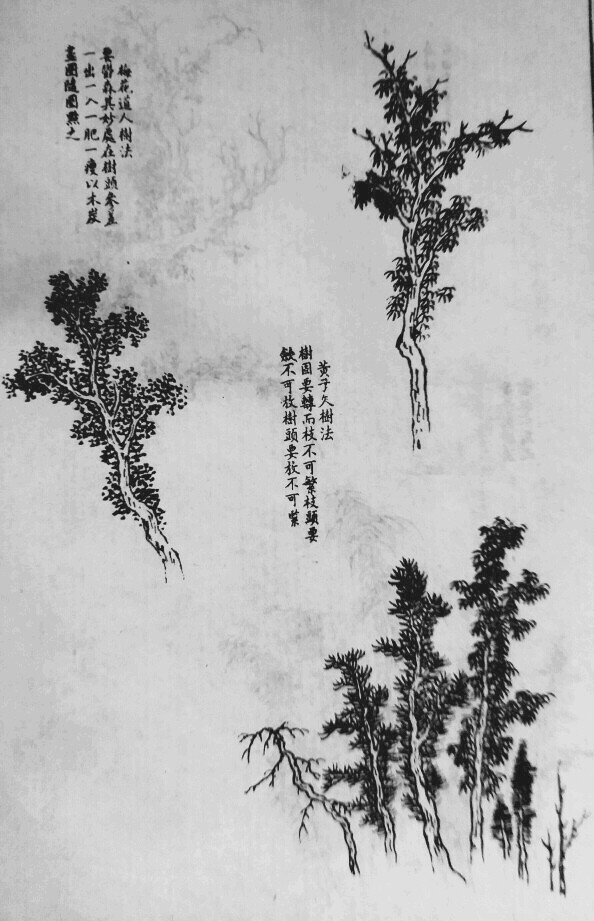 梅花道人樹法
要欝森其妙處在樹頭參差
一出一入一肥一瘦以木炭
畫圈隨圈點之
黃子久樹法
樹固要轉而枝不可繁枝頭要
斂不可放樹頭要放不可緊